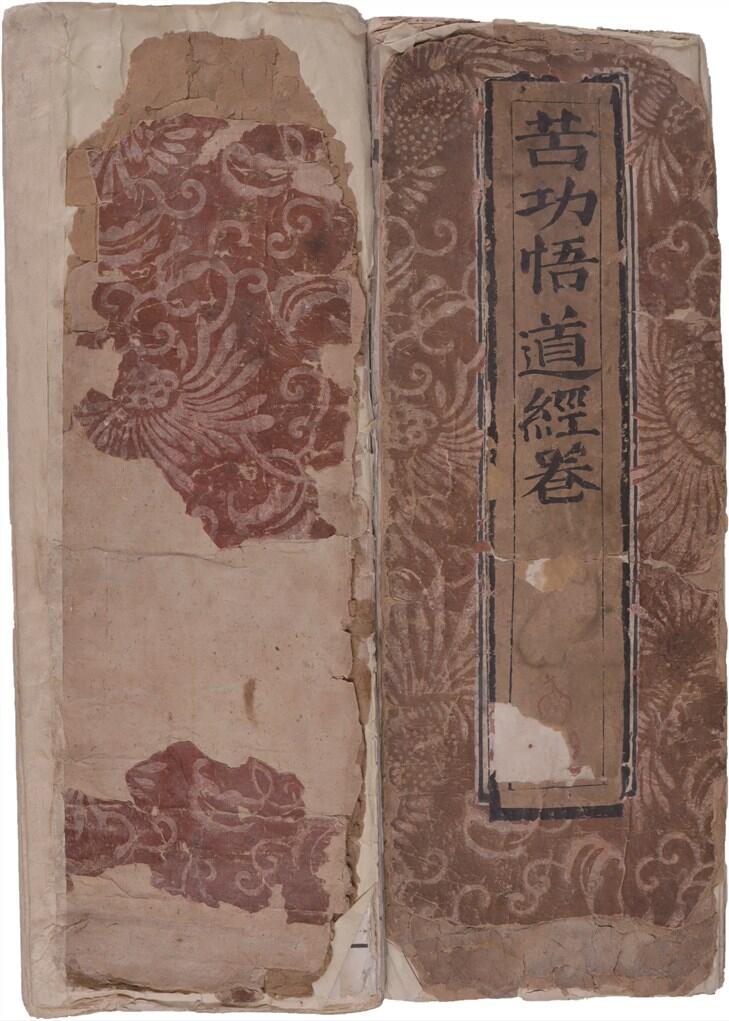 苦功悟道經卷